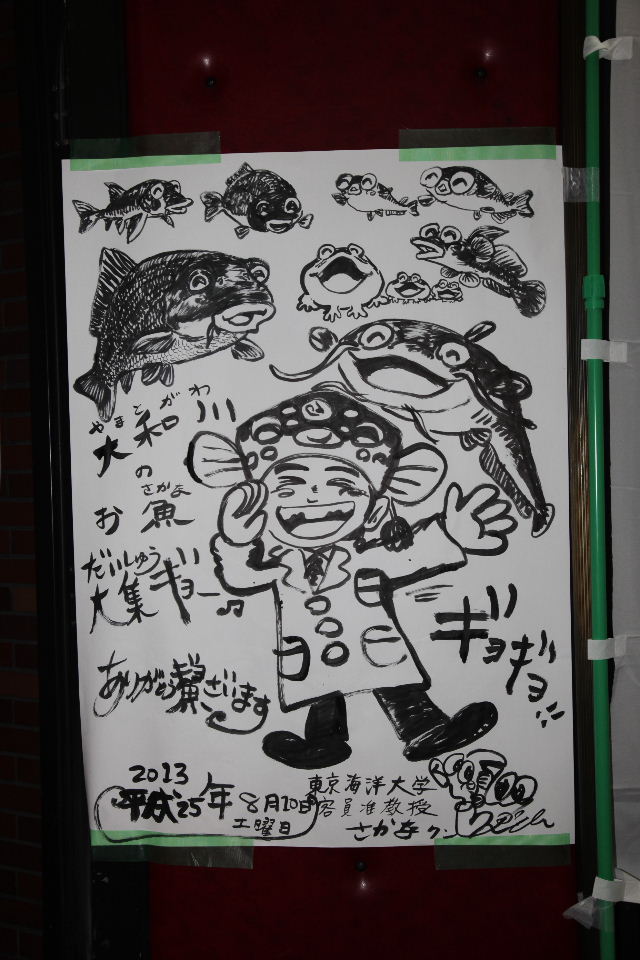 やまとがわ
大和川
の
さかな
お魚
だいしゅう
大集ギョー♫
ギョギョ
ありがとうございます
2013
平成25年 8月10日
土曜日
東京海洋大学
客員准教授
さかなクン